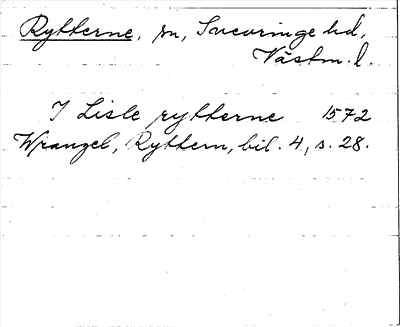 Rytterne, sn, Snevringe hd,
Västm. l.
I Lisle rytterne 1572
Wrangel, Ryttern, bil. 4, s. 28.